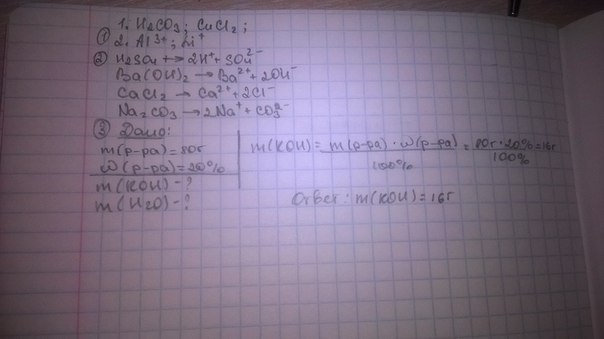 1. H₂CO₃; CuCl₂;
① 2. Al³⁺; Li⁺
② H₂SO₄ ↔ 2H⁺ + SO₄²⁻
Ba(OH)₂ → Ba²⁺ + 2OH⁻
CaCl₂ → Ca²⁺ + 2Cl⁻
Na₂CO₃ → 2Na⁺ + CO₃²⁻
③ Дано:
m(р-ра) = 80г
ω(р-ра) = 20%
m(KOH) - ?
m(H₂O) - ?
m(KOH) = m(р-ра) · ω(р-ра) / 100% = 80г · 20% / 100% = 16г
Ответ: m(KOH) = 16г